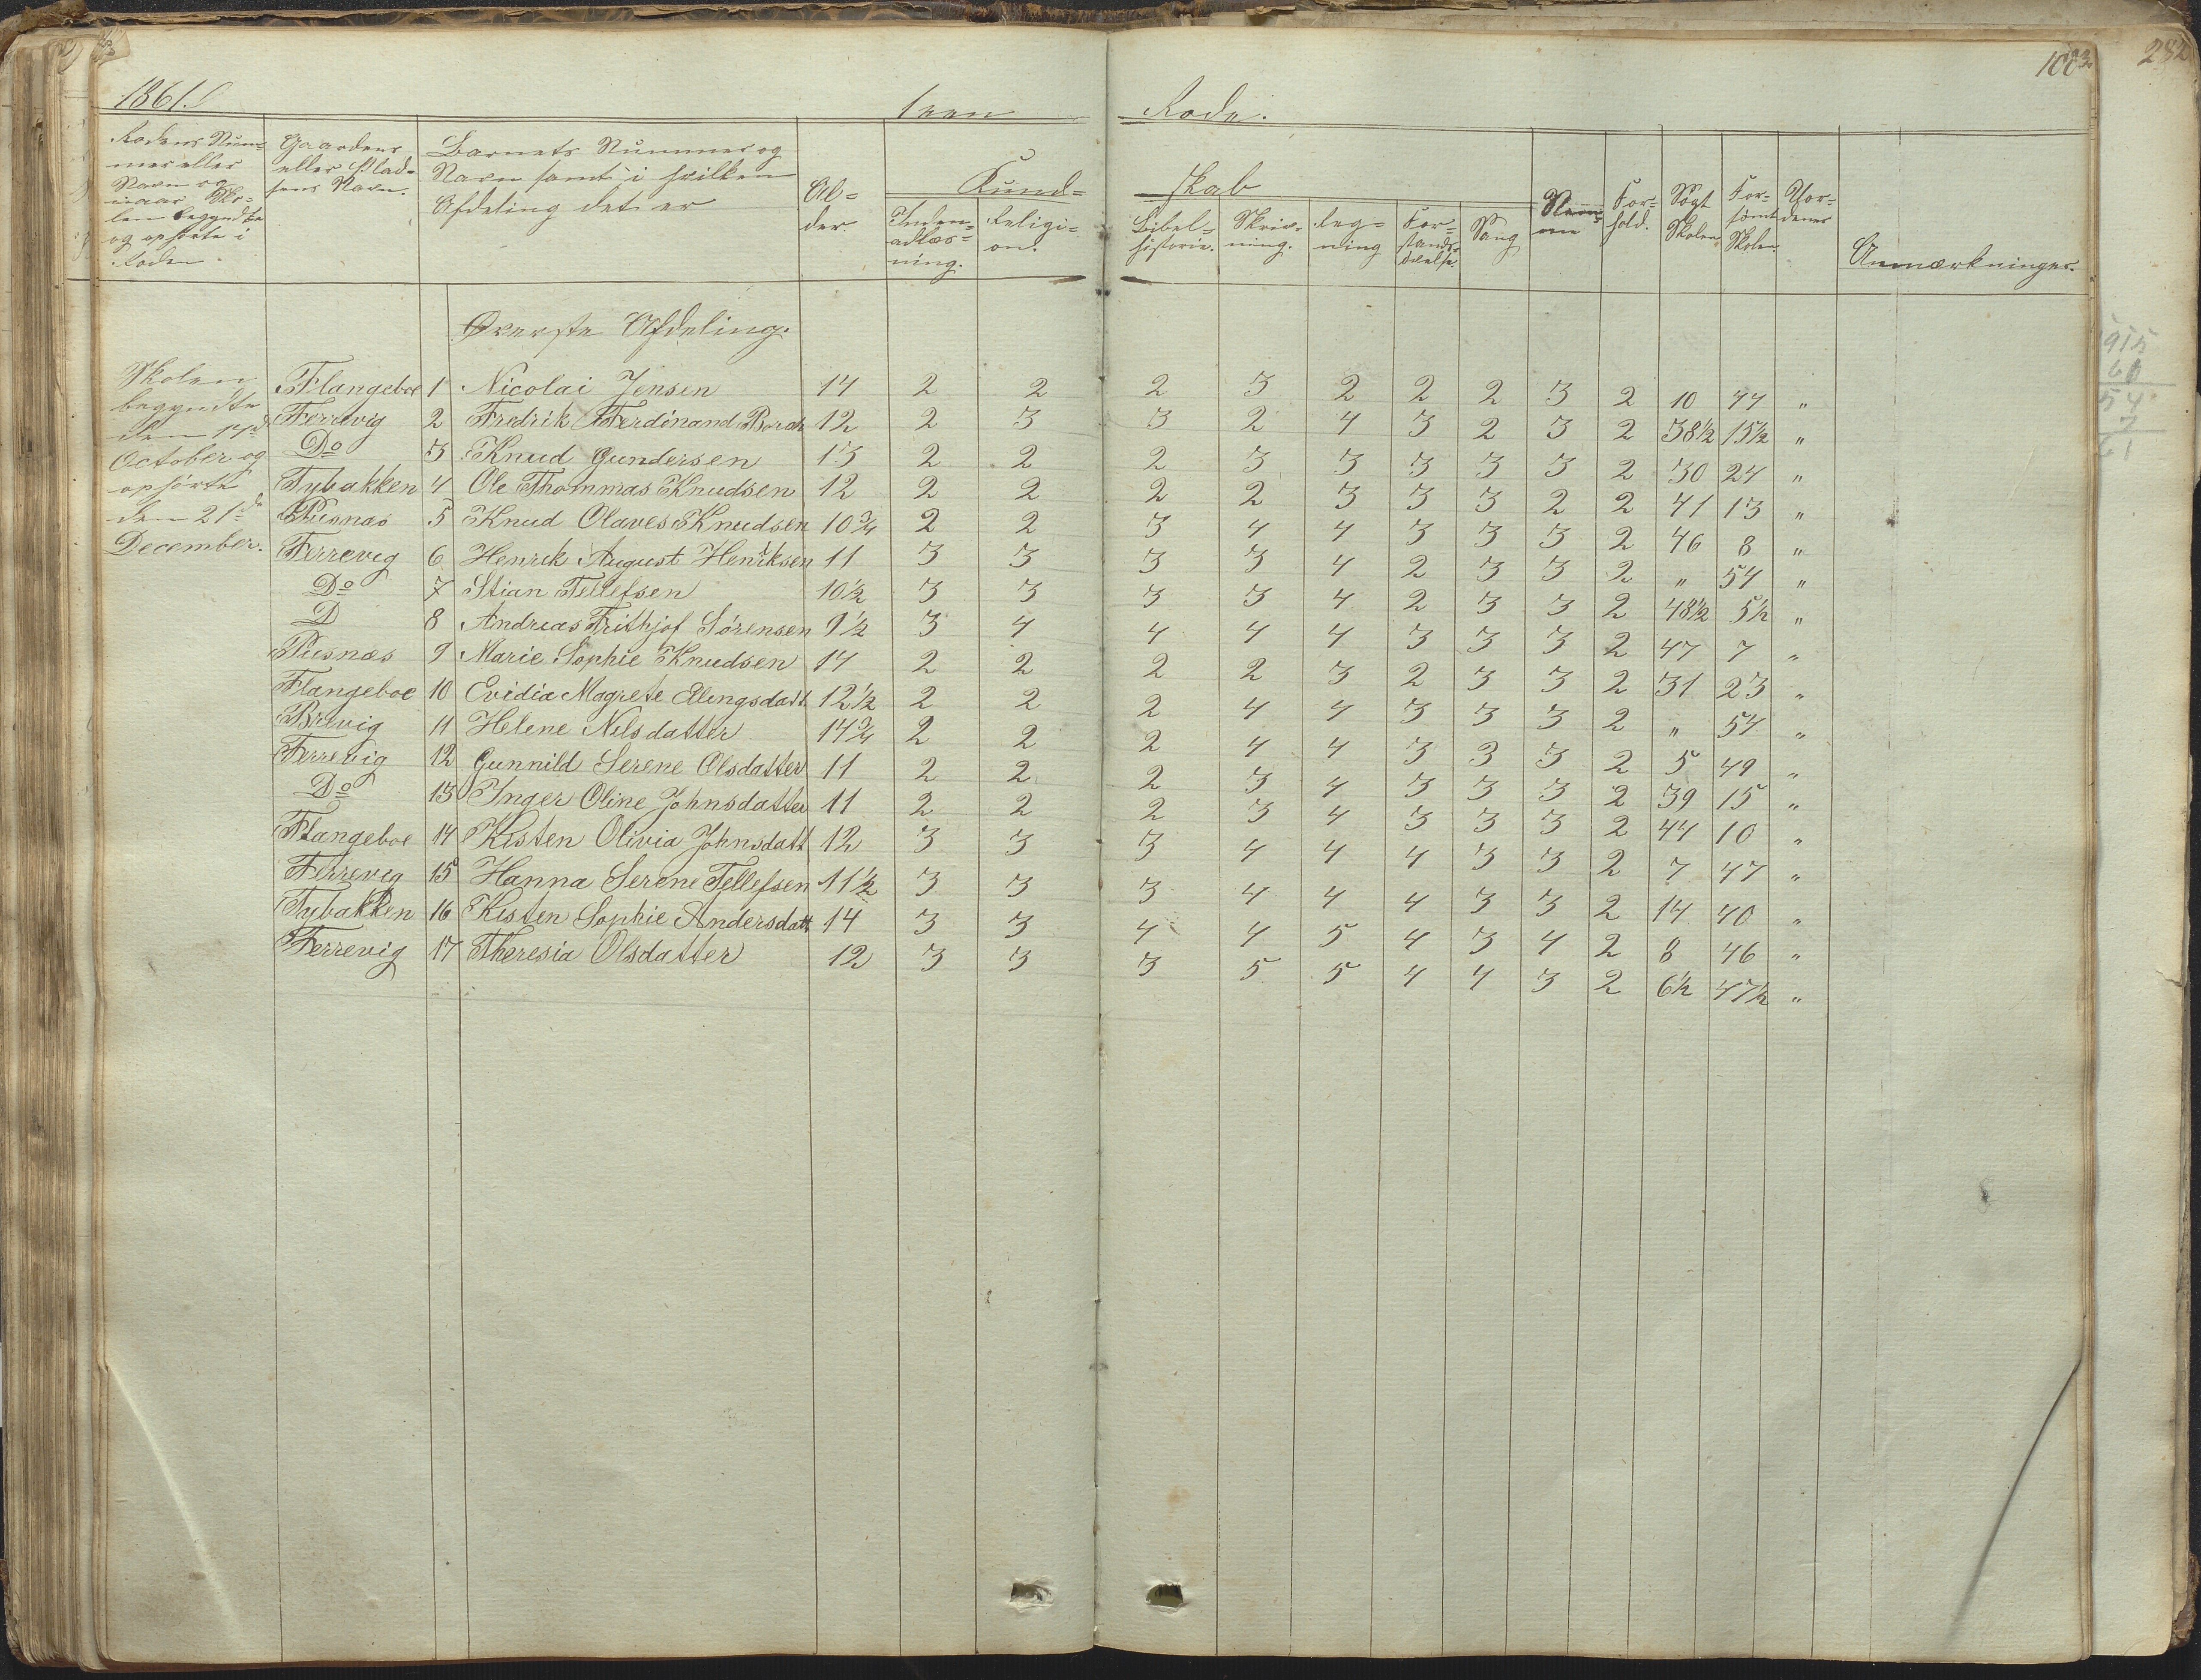 1003.
282
1861.
1een Rode.
Rodens Num=
mer eller
Navn og
naar Sko=
len begyndte
og ophørte i
Roden.
Gaardens
eller Plad=
sens Navn.
Barnets Nummer og
Navn samt i hvilken
Afdeling det er
Al=
der.
Kund= skab
Inden=
adlæs=
ning.
Religi=
on.
Bibel=
historie.
Skriv=
ning.
Reg=
ning
For=
stands=
øvelse.
Sang
Nem=
me
For=
hold.
Søgt
Skolen
For=
sømt
Skolen.
Anmærkninger.
Øverste Afdeling.
Skolen
begyndte
den 17de
October og
ophørte
den 21de
December.
Flangeboe 1 Nicolai Jensen 14 2 2 2 3 2 2 2 3 2 10 44 "
Ferrevig 2 Fredrik Ferdinand Borch 12 2 3 3 2 4 3 2 3 2 38½ 15½ "
Do 3 Knud Gundersen 13 2 2 2 3 3 3 3 3 2 30 24 "
Tybakken 4 Ole Thommas Knudsen 12 2 2 2 2 3 3 3 2 2 41 13 "
Pusnas 5 Knud Olaves Knudsen 10¾ 2 2 3 4 4 3 3 3 2 46 8 "
Ferrevig 6 Henrik August Henriksen 11 3 3 3 3 4 2 3 3 2 " 54 "
Do 7 Stian Tellefsen 10½ 3 3 3 3 4 2 3 3 2 48½ 5½ "
D 8 Andreas Frithjof Sørensen 9½ 3 4 4 4 4 3 3 3 2 47 7 "
Pusnæs 9 Marie Sophie Knudsen 14 2 2 2 2 3 2 3 3 2 31 23 "
Flangeboe 10 Evidia Magrete Elingsdatt. 12½ 2 2 2 4 4 3 3 3 2 " 54 "
Brevig 11 Helene Nilsdatter 14¾ 2 2 2 4 4 3 3 3 2 5 49 "
Ferrevig 12 Gunnild Serene Olsdatter 11 2 2 2 3 4 3 3 3 2 39 15 "
Do 13 Inger Oline Johnsdatter 11 2 2 2 3 4 3 3 3 2 44 10 "
Flangeboe 14 Kisten Olivia Johnsdatt 12 3 3 3 4 4 4 3 3 2 7 47 "
Ferrevig 15 Hanna Serene Tellefsen 11½ 3 3 3 4 4 4 3 3 2 14 40 "
Tybakken 16 Kisten Sophie Andersdatt 14 3 3 4 4 5 4 3 4 2 8 46 "
Ferrevig 17 Theresia Olsdatter 12 3 3 3 5 5 4 4 3 2 6½ 47½ "